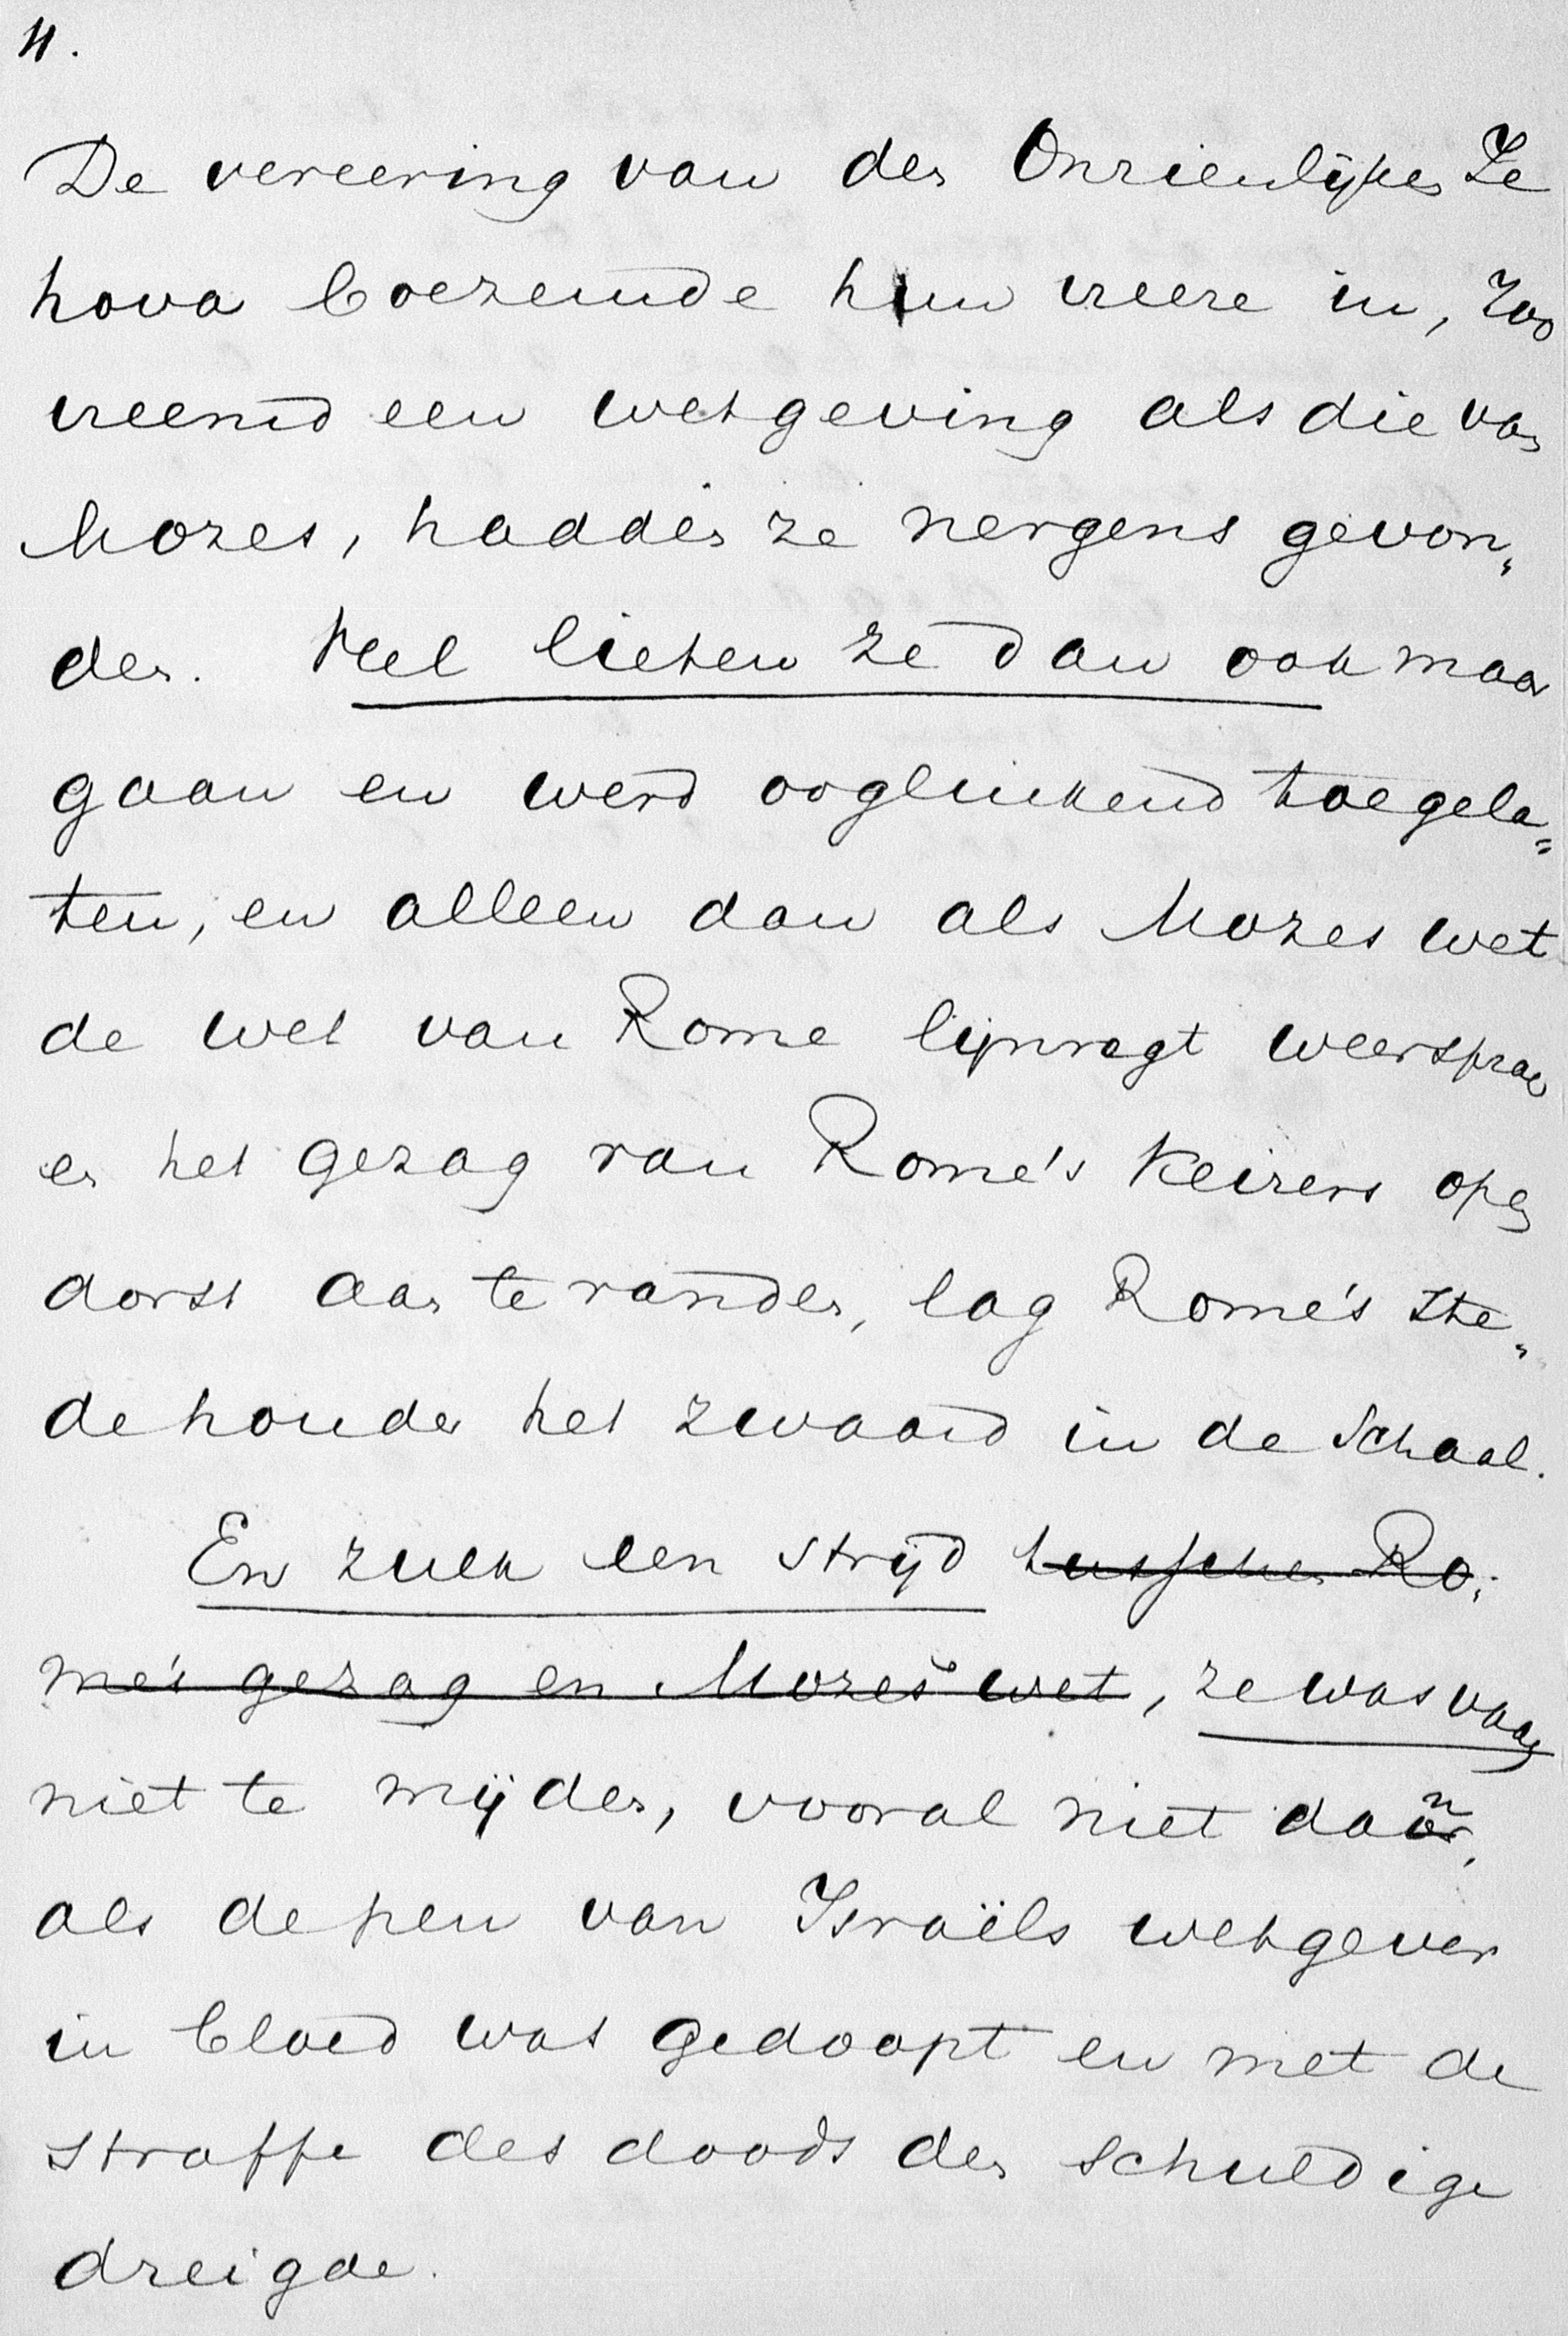 4.
De vereering van den Onzienlijken Je
hova boezemde hun vreeze in, zoo
vreemd een wetgeving als die van
Mozes, hadden ze nergens gevon„
den. Veel lieten ze dan ook maar
gaan en werd oogluikend toegela„
ten, en alleen dan als Mozes wet
de wet van Rome lijnregt weersprak
en het gezag van Rome's Keizers open
dorst aan te randen, lag Rome's Ste„
dehouder het zwaard in de Schaal.
En zulk een strijd tusschen Ro„
me's gezag en Mozes wet, ze was vaak
niet te mijden, vooral niet daar n,
als de pen van Israëls wetgever
in bloed was gedoopt en met de
straffe des doods den schuldige
dreigde.